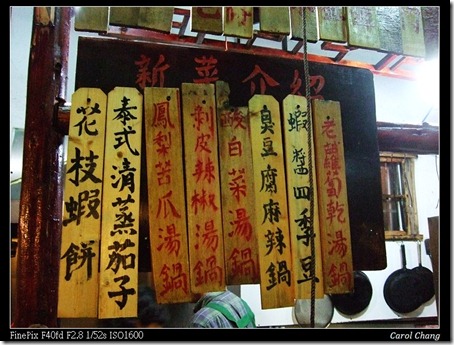 Carol Chang
新菜介紹
花枝蝦餅
泰式清蒸茄子
鳳梨苦瓜湯鍋
剝皮辣椒湯鍋
酸白菜湯鍋
臭豆腐麻辣鍋
蝦醬四季豆
老蘿蔔乾湯鍋
FinePix F40fd F2.8 1/52s ISO1600
Carol Chang